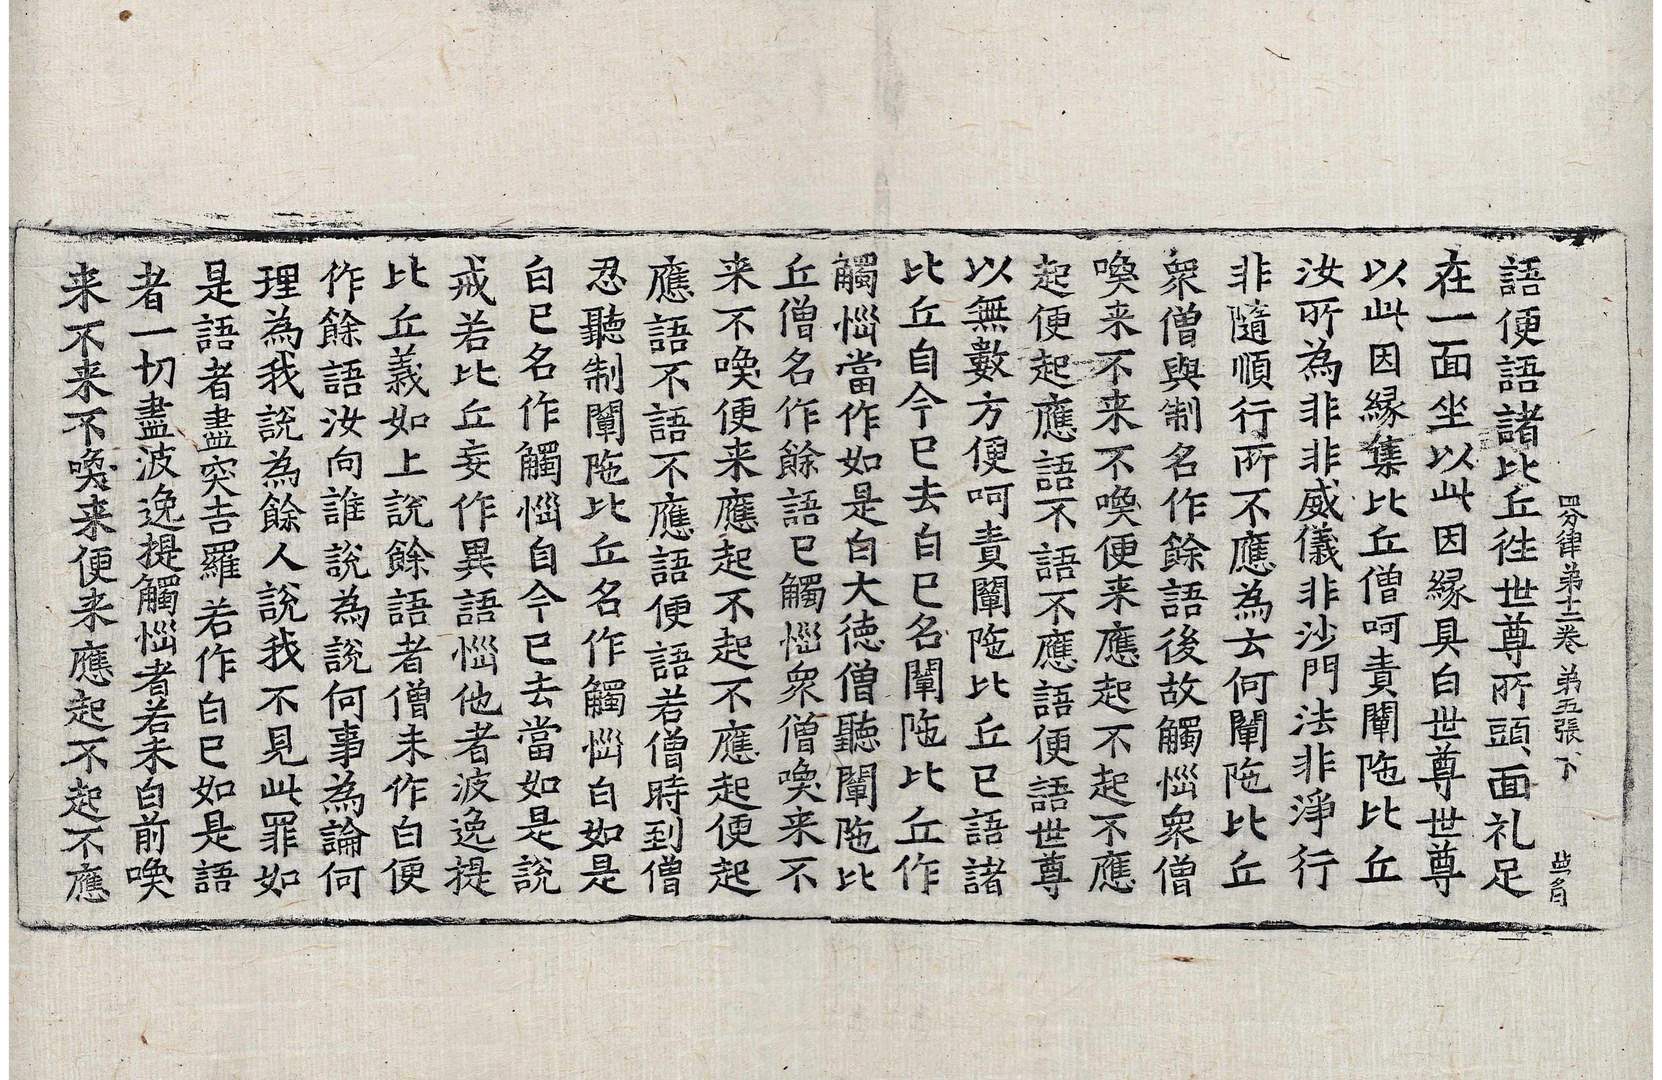 四分律第十二卷 第五張 下 貞
語便語諸比丘徃世尊所頭面礼足
在一面坐以此因縁具白世尊世尊
以此因縁集比丘僧呵責闡陁比丘
汝所為非非威儀非沙門法非淨行
非隨順行所不應為云何闡陁比丘
衆僧與制名作餘語後故觸惱衆僧
喚来不来不喚便来應起不起不應
起便起應語不語不應語便語世尊
以無數方便呵責闡陁比丘已語諸
比丘自今已去白已名闡陁比丘作
觸惱當作如是白大徳僧聽闡陁比
丘僧名作餘語已觸惱衆僧喚来不
来不喚便来應起不起不應起便起
應語不語不應語便語若僧時到僧
忍聽制闡陁比丘名作觸惱白如是
白已名作觸惱自今已去當如是說
戒若比丘妄作異語惱他者波逸提
比丘義如上說餘語者僧未作白便
作餘語汝向誰說為說何事為論何
理為我說為餘人說我不見此罪如
是語者盡突吉羅若作白已如是語
者一切盡波逸提觸惱者若未白前喚
来不来不喚来便来應起不起不應